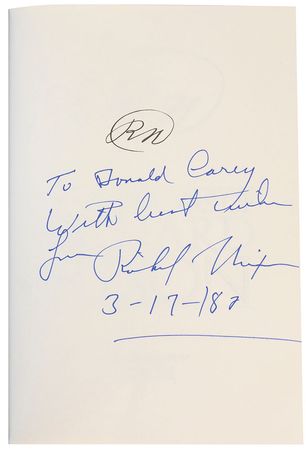 RN
To Donald Carey
With best wishes
from Richard Nixon
3-17-'82